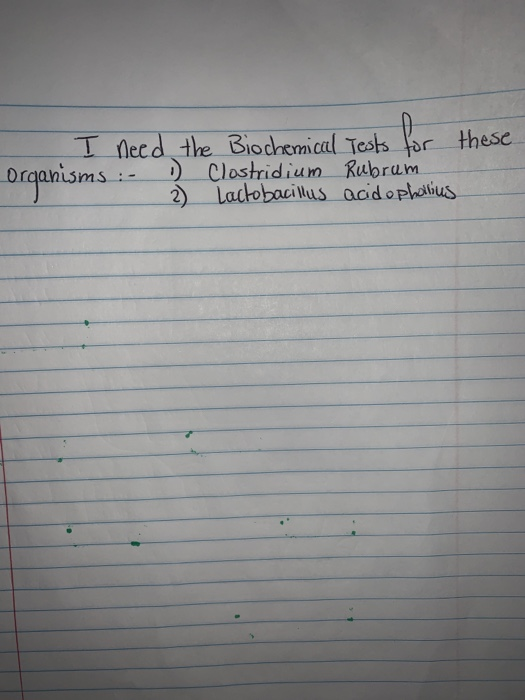 I need the Biochemical Tests for these
organisms :- 1) Clostridium Rubrum
2) Lactobacillus acidophallius